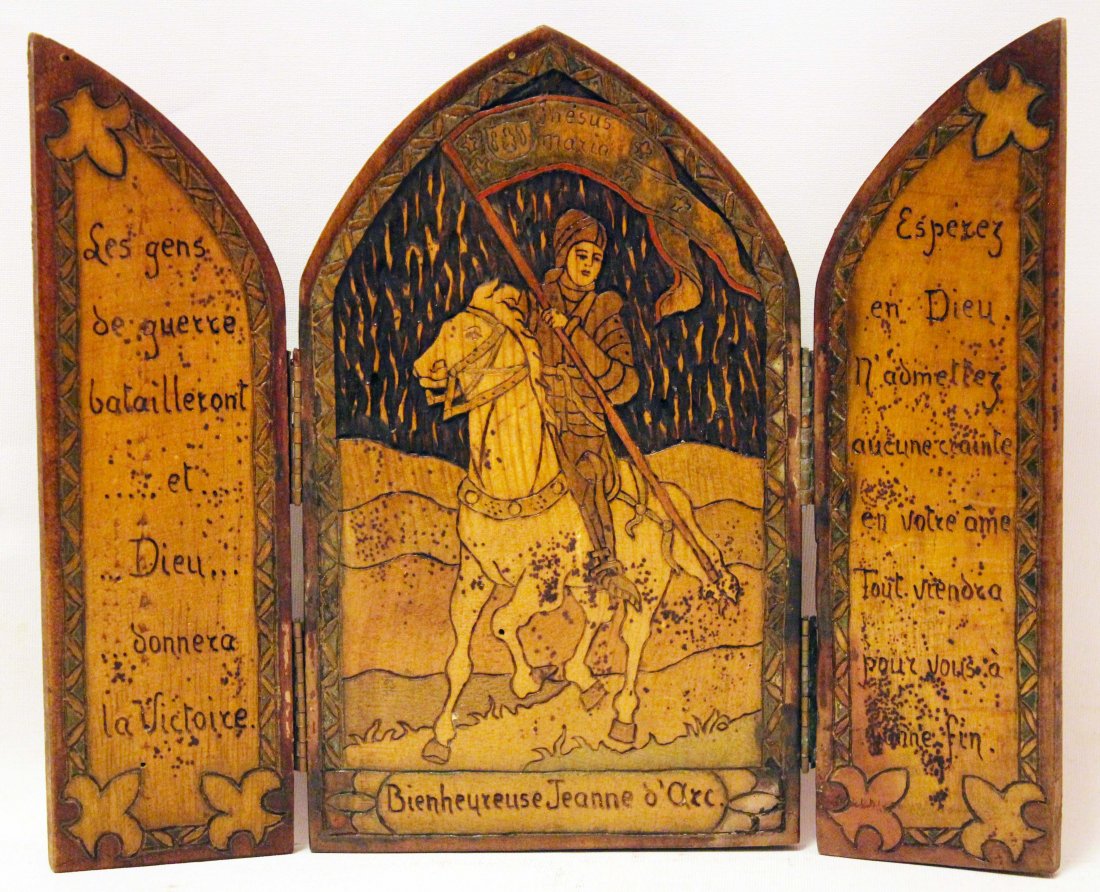 Les gens
de guerre
batailleront
.... et ...
.. Dieu ...
donnera
la Victoire.
Jhesus
Maria
Bienheureuse Jeanne d'Arc.
Esperez
en Dieu
N'admettez
aucune crainte
en votre âme
Tout viendra
pour vous à
bonne fin.